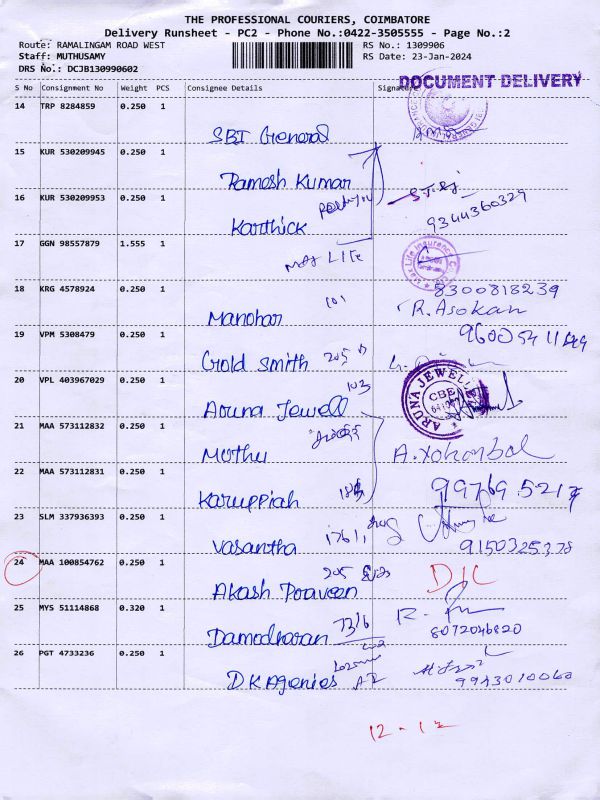 THE PROFESSIONAL COURIERS, COIMBATORE
Delivery Runsheet - PC2 - Phone No.:0422-3505555 - Page No.:2
Route: RAMALINGAM ROAD WEST RS No.: 1309906
Staff: MUTHUSAMY RS Date: 23-Jan-2024
DRS No.: DCJB130990602
DOCUMENT DELIVERY
S No Consignment No Weight PCS Consignee Details Signature
14 TRP 8284859 0.250 1
SBI General
15 KUR 530209945 0.250 1
Ramesh Kumar
16 KUR 530209953 0.250 1
Karthick 9344360329
17 GGN 98557879 1.555 1
Max LIFE
18 KRG 4578924 0.250 1 8300813239
Manohar 101 R. Asokan
19 VPM 5308479 0.250 1
Gold Smith 205
20 VPL 403967029 0.250 1
Aruna Jewell 103 ARUNA JEWELL CBE
21 MAA 573112832 0.250 1
Muthu
22 MAA 573112831 0.250 1
Karuppiah
23 SLM 337936393 0.250 1
Vasantha 1761, 9150325378
24 MAA 100854762 0.250 1
Akash Praveen 205 D/C
25 MYS 51114868 0.320 1
Damodharan 73/6 8072046820
26 PGT 4733236 0.250 1
D K Agenies 9943010060
12-12